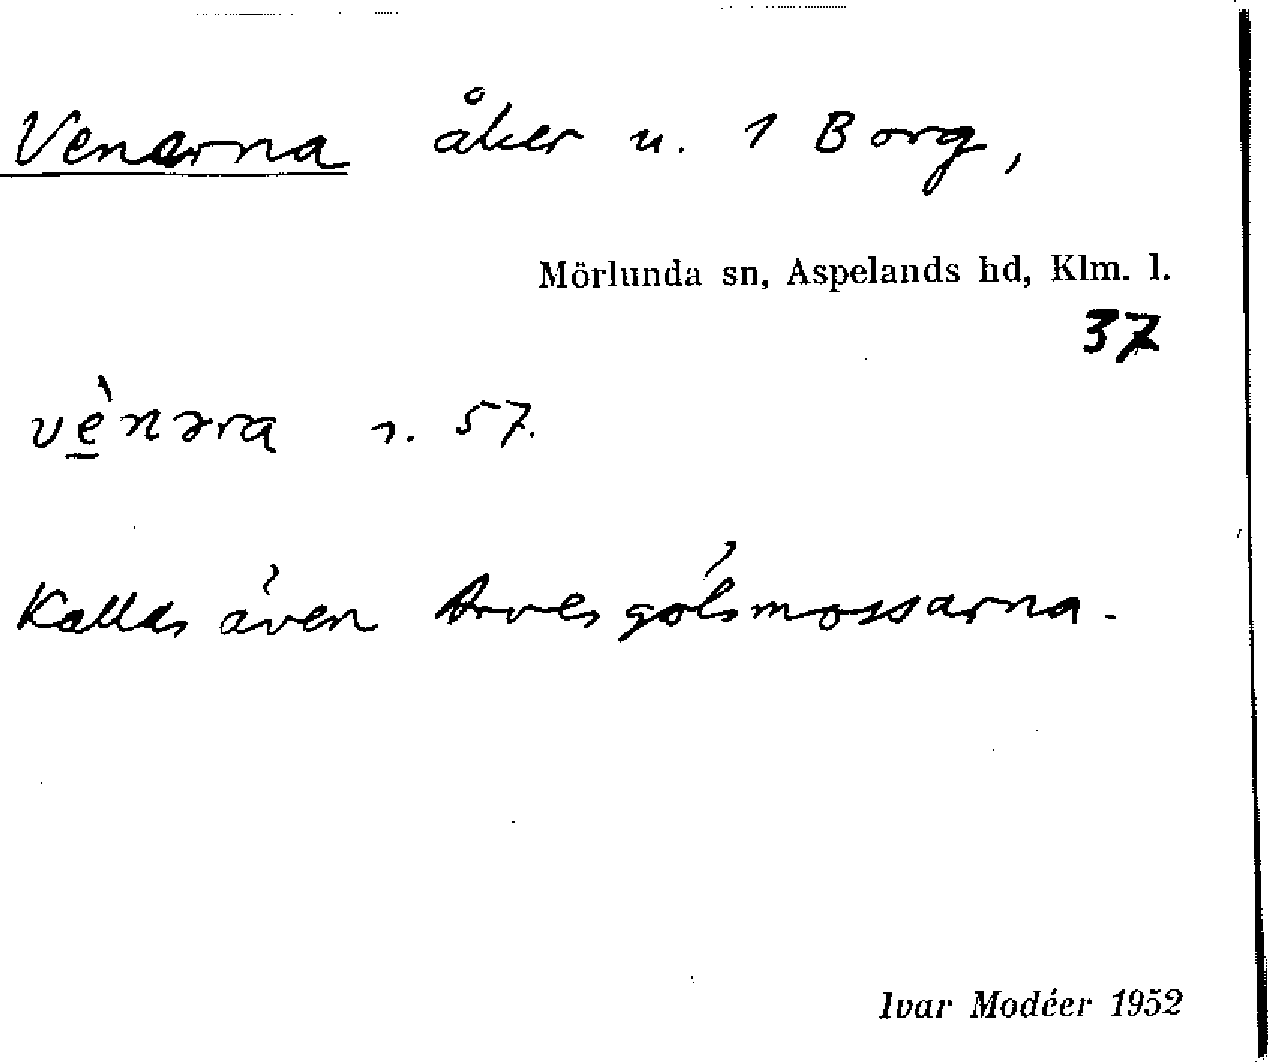 Venerna åker u. 1 Borg,
Mörlunda sn, Aspelands hd, Klm. l.
37
vè̱nəra n. 57.
Kallas även Arvesgölsmossarna.
Ivar Modéer 1952